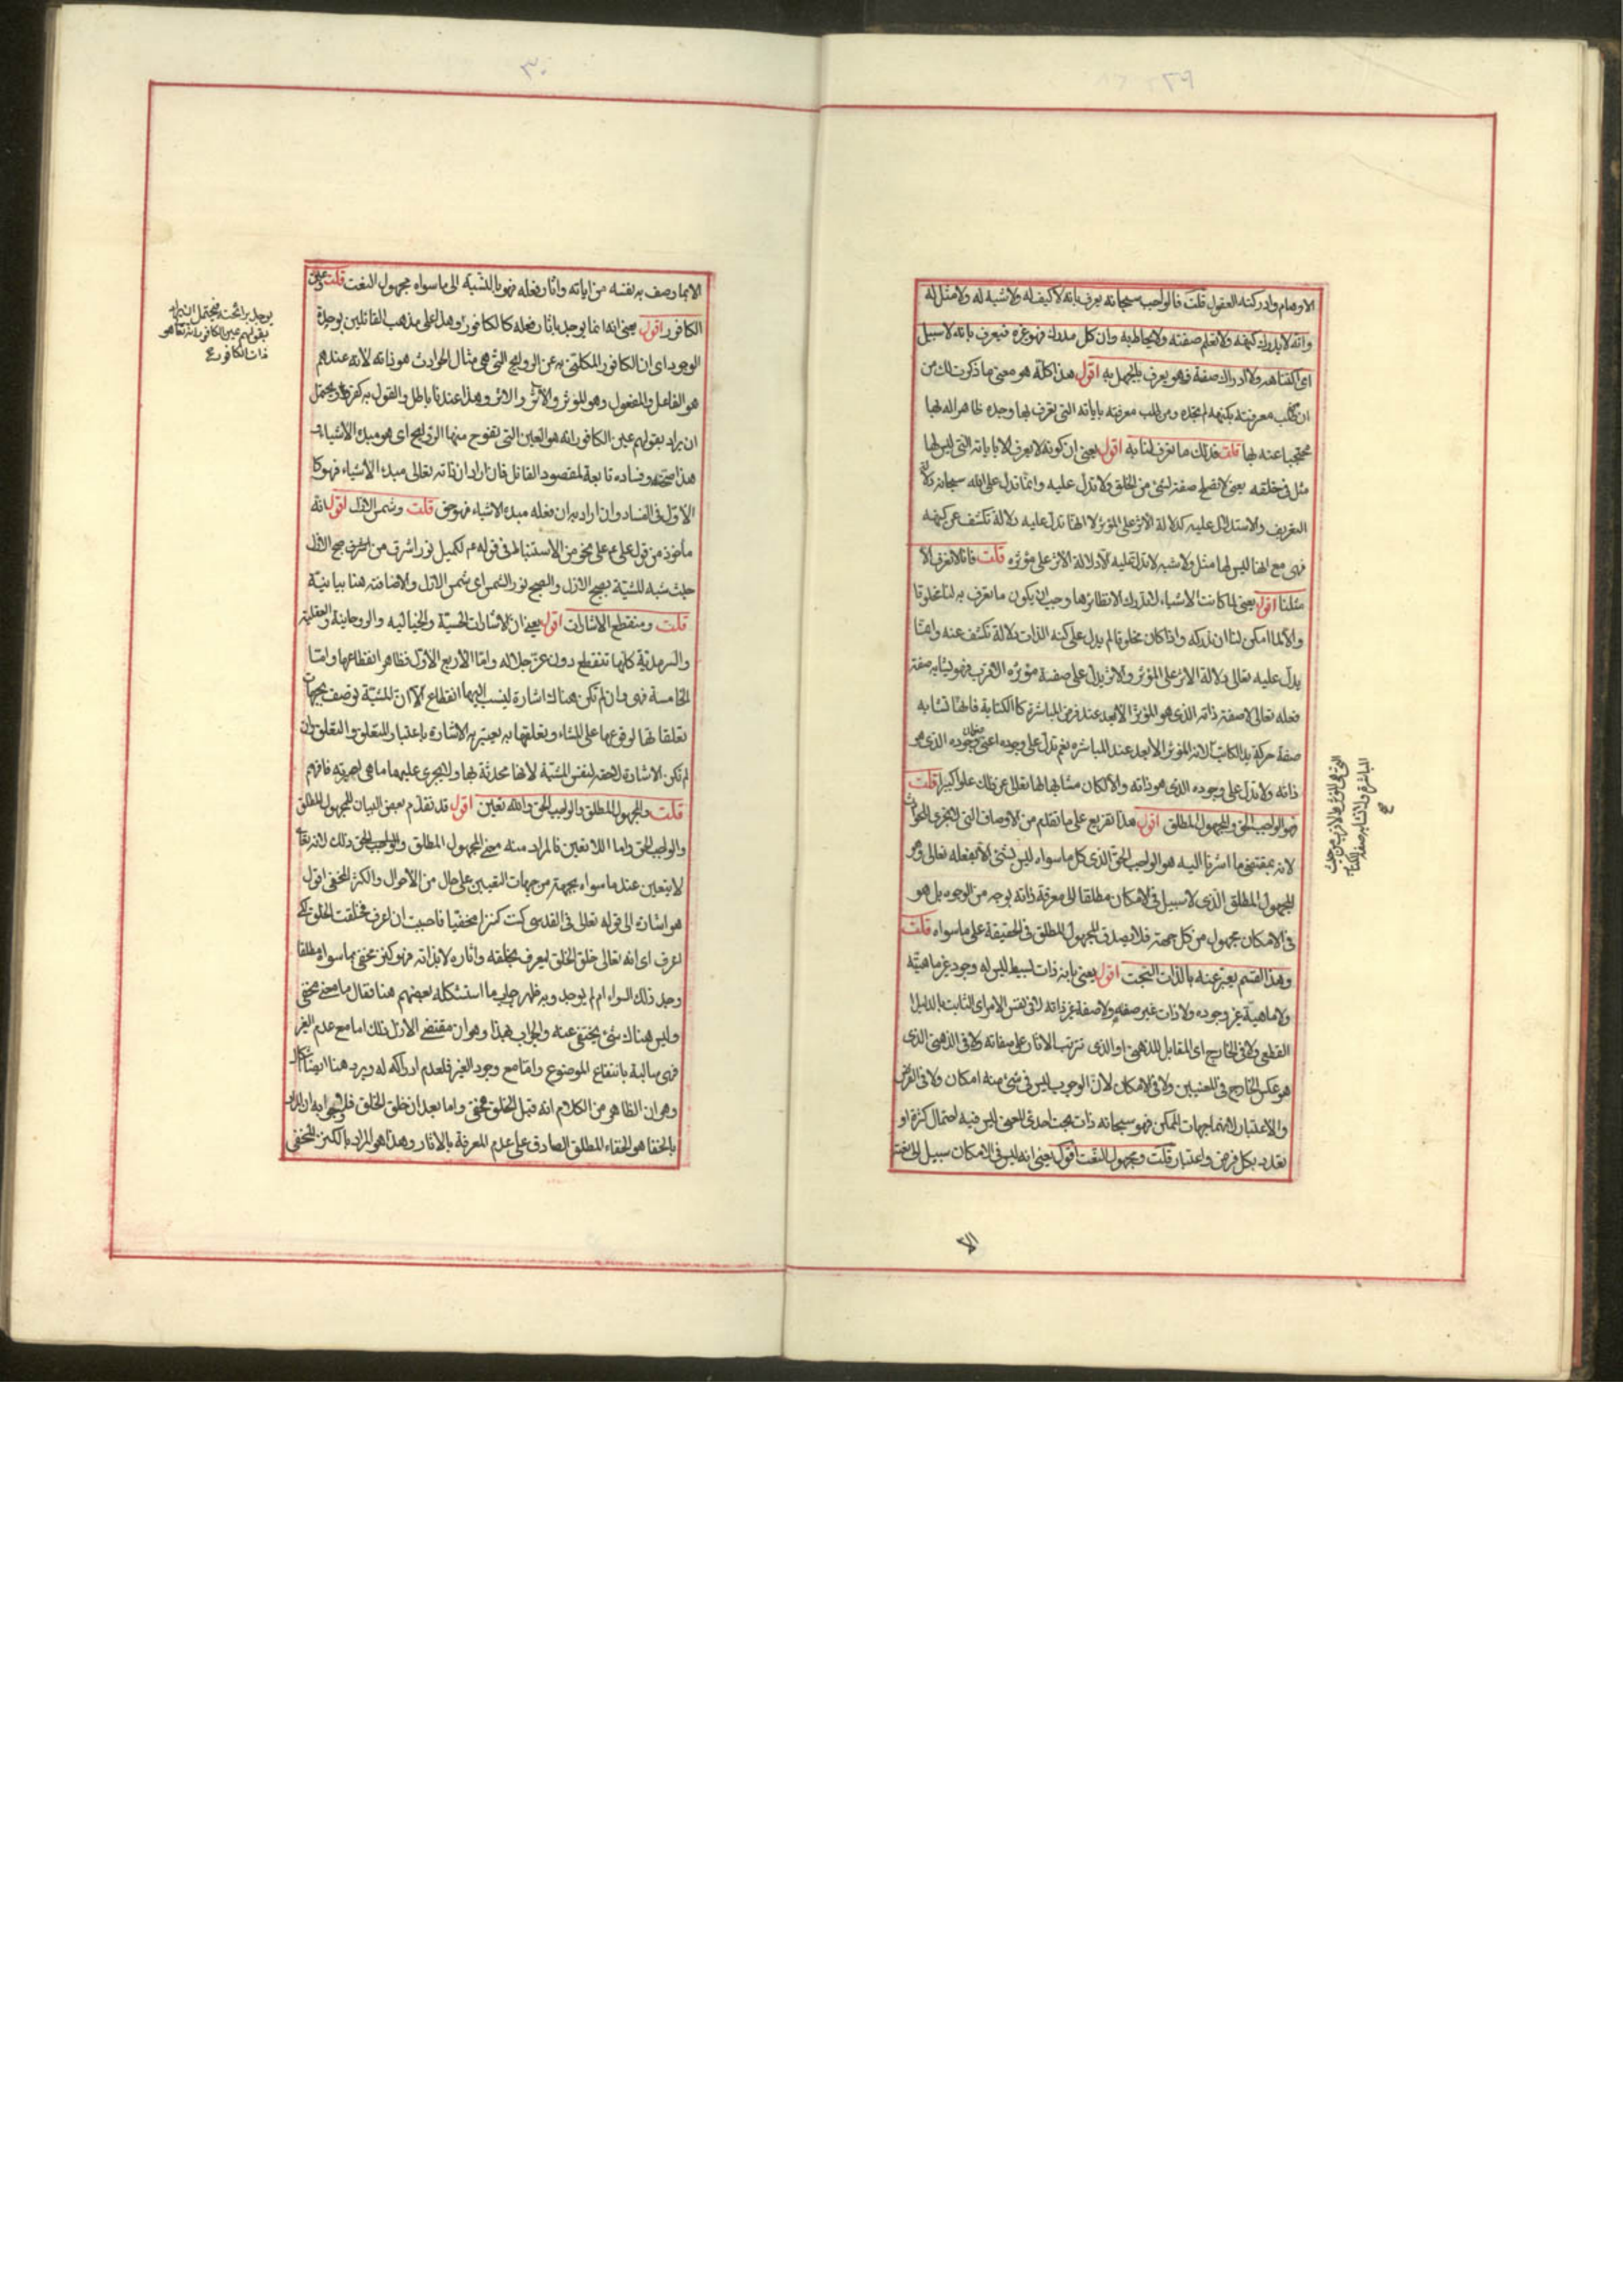 ٢٩
الاوهام وادركته العقول قلت فالواجب سبحانه يعرف بانه لا كيف له ولا شبه له ولا مثل له
وانه لا يدرك كنهه ولا تعلم صفته ولا يحاط به وان كل مدرك فهو غيره فيعرف بانه لا سبيل
الى اكتناهه ولا ادراك صفته فهو يعرف بالجهل به اقول هذا كله هو معنى ما ذكرت لك من
ان طلب معرفته بكنهه لم تجده ومن طلب معرفته باياته التى تعرف بها وجده ظاهرا له بها
محتجبا عنه بها قلت فذلك ما تعرف لنا به اقول يعنى ان كونه لا يعرف الا باياته التى ليس لها
مثل فى خلقه يعنى لا تصلح صفة لشئ من الخلق ولا تدل عليه وانما تدل على الله سبحانه دلالة
التعريف والاستدلال عليه كدلالة الاثر على المؤثر لا انها تدل عليه دلالة تكشف عن كنهه
فهى مع انها ليس لها مثل ولا شبه لا تدل عليه الا دلالة الاثر على مؤثره قلت فانا لا نعرف الا
مثلنا اقول يعنى لما كانت الاشياء لا تدرك الا نظائرها وجب ان يكون ما تعرف به لنا مخلوقا
والا لما امكن لنا ان ندركه واذا كان مخلوقا لم يدل على كنه الذات دلالة تكشف عنه وانما
يدل عليه تعالى دلالة الاثر على المؤثر والاثر يدل على صفة مؤثره الاقرب فهو يشابه صفة
فعله تعالى لا صفة ذاته الذى هو المؤثر الابعد عند فرض المباشرة كالكتابة فانها تشابه
صفة حركة يد الكاتب لانه المؤثر الابعد عند المباشره نعم تدل على وجوده اعنى وجوده الذى هو
ذاته ولا تدل على وجوده الذى هو ذاته والا لكان مشابها لها تعالى عن ذلك علوا كبيرا قلت
فهو الواجب الحق والمجهول المطلق اقول هذا تفريع على ما تقدم من الاوصاف التى لا تجرى على الحوادث
لانه بمقتضى ما اشرنا اليه هو الواجب الحق الذى كل ما سواه ليس بشئ الا بفعله تعالى وهو
المجهول المطلق الذى لا سبيل فى الامكان مطلقا الى معرفة ذاته بوجه من الوجوه بل هو
فى الامكان مجهول من كل جهة فلا يصدق المجهول المطلق فى الحقيقة على ما سواه قلت
وهذا القسم يعبر عنه بالذات البحت اقول يعنى بانه ذات بسيط ليس له وجود غير ماهيته
ولا ماهية غير وجوده ولا ذات غير صفة ولا صفة غير ذاته لا فى نفس الامر اى الثابت بالدليل
القطعى ولا فى الخارج اى المقابل للذهنى او الذى تترتب الاثار على صفاته ولا فى الذهنى الذى
هو عكس الخارج فى المعنيين ولا فى الامكان لان الوجوب ليس فى شئ منه امكان ولا فى الفرض
والاعتبار لانهما جهات الممكن فهو سبحانه ذات بحت احدى المعنى ليس فيه احتمال كثرة او
تعدد بكل فرض واعتبار قلت ومجهول النعت اقول يعنى انه ليس فى الامكان سبيل الى نعته
الا
٣٠
الا بما وصف به نفسه من اياته واثار فعله فهو بالنسبة الى ما سواه مجهول النعت قلت وعين
الكافور اقول يعنى انه انما يوجد باثار فعله كالكافور وهذا على مذهب القائلين بوحدة
الوجود اى ان الكافور المكنى به عن الروايح التى هى مثال الحوادث هو ذاته لانه عندهم
هو الفاعل والمفعول وهو المؤثر والاثر والاثر وهذا عندنا باطل والقول به كفر بل يحتمل
ان يراد بقولهم عين الكافور انه هو العين التى تفوح منها الروايح اى هو مبدء الاشياء
هذا صحته وفساده تابعة لمقصود القائل فان اراد ان ذاته تعالى مبدء الاشياء فهو كا
الاول فى الفساد وان اراد به ان فعله مبدء الاشياء فهو حق قلت وشمس الازل اقول انه
مأخوذ من قول على م على نحو من الاستنباط فى قوله م لكميل نور اشرق من صبح الازل
حيث شبه المشية بصبح الازل والصبح نور الشمس اى شمس الازل والاضافة هنا بيانية
قلت ومنقطع الاشارات اقول يعنى ان الاشارات الحسية والخيالية والروحانية والعقلية
والسرمدية كلها تنقطع دون عز جلاله واما الاربع الاول فظاهر انقطاعها واما
الخامسة فهى وان لم تكن هناك اشارة لينسب اليها انقطاع الا ان المشية توصف بجهات
تعلقاتها لوقوعها على المشاء وتعلقها به يعتبر به الاشارة باعتبار المتعلق والتعلق وان
لم تكن الاشارة لاحقة لنفس المشية لانها محدثة بها ولا يجرى عليها ما هى اجرته فافهم
قلت والمجهول المطلق والواجب الحق واللا تعين اقول قد تقدم بعض البيان للمجهول المطلق
والواجب الحق واما اللا تعين فالمراد منه معنى المجهول المطلق والواجب الحق وذلك لانه تعالى
لا يتعين عند ما سواه بجهة من جهات التعين على حال من الاحوال والكنز المخفى اقول
هو اشارة الى قوله تعالى فى القدسى كنت كنزا مخفيا فاحببت ان اعرف فخلقت الخلق لكى
اعرف اى انه تعالى خلق الخلق ليعرف بخلقه واثاره لا بذاته فهو كنز مخفى بما سواه مطلقا
وجد ذلك السواء ام لم يوجد وبه ظهر جواب ما استشكله بعضهم هنا فقال ما معنى مخفى
وليس هناك شئ يختفى عنه والجواب بهذا وهو ان مقتضى الازل ذلك اما مع عدم الغير
فهى سالبة بانتفاء الموضوع واما مع وجود الغير فلعدم ادراكه له ويرد هنا ايضا اشكال
وهو ان الظاهر من الكلام انه قبل الخلق مخفى واما بعد ان خلق الخلق فلا وجوابه ان المراد
بالخفا هو الخفاء المطلق الصادق على عدم المعرفة بالاثار وهذا هو المراد بالكنز المخفى
التى هى المؤثر الاقرب من حيث
المباشرة ولا تشابه صفة الكاتب
صح
يوجد برائحته فيحتمل ان يراد
بقولهم عين الكافور انه تعالى هو
ذات الكافور صح